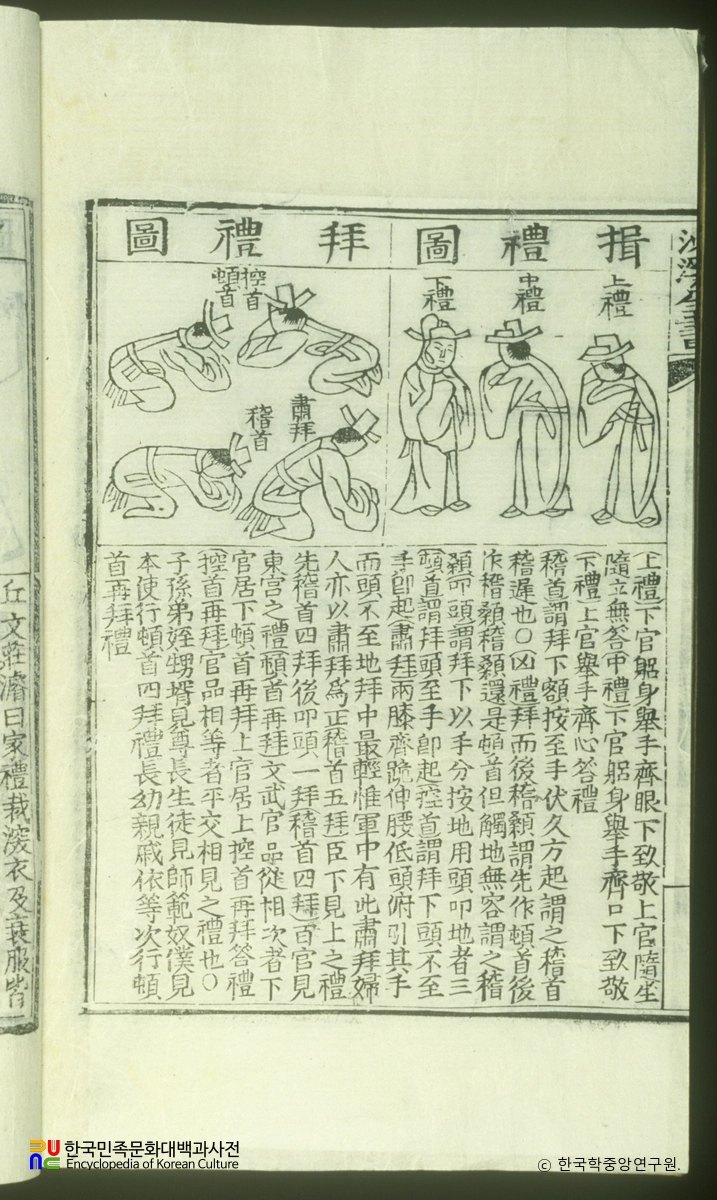 沙溪全書
揖禮圖
上禮
中禮
下禮
拜禮圖
控首
頓首
肅拜
稽首
上禮下官躬身擧手齊眼下致敬上官隨坐
隨立無答中禮下官躬身擧手齊口下致敬
下禮上官擧手齊心答禮
稽首謂拜下額按至手伏久方起謂之稽首
稽遲也○凶禮拜而後稽顙謂先作頓首後
作稽顙稽顙還是頓首但觸地無容謂之稽
顙叩頭謂拜下以手分按地用頭叩地者三
頓首謂拜頭至手卽起控首謂拜下頭不至
手卽起肅拜兩膝齊跪伸腰低頭俯引其手
而頭不至地拜中最輕惟軍中有此肅拜婦
人亦以肅拜爲正稽首五拜臣下見上之禮
先稽首四拜後叩頭一拜稽首四拜百官見
東宮之禮頓首再拜文武官品從相次者下
官居下頓首再拜上官居上控首再拜答禮
控首再拜官品相等者平交相見之禮也○
子孫弟姪甥壻見尊長生徒見師範奴僕見
本使行頓首四拜禮長幼親戚依等次行頓
首再拜禮
丘文莊濬曰家禮裁深衣及衰服皆
한국민족문화대백과사전
Encyclopedia of Korean Culture
© 한국학중앙연구원.